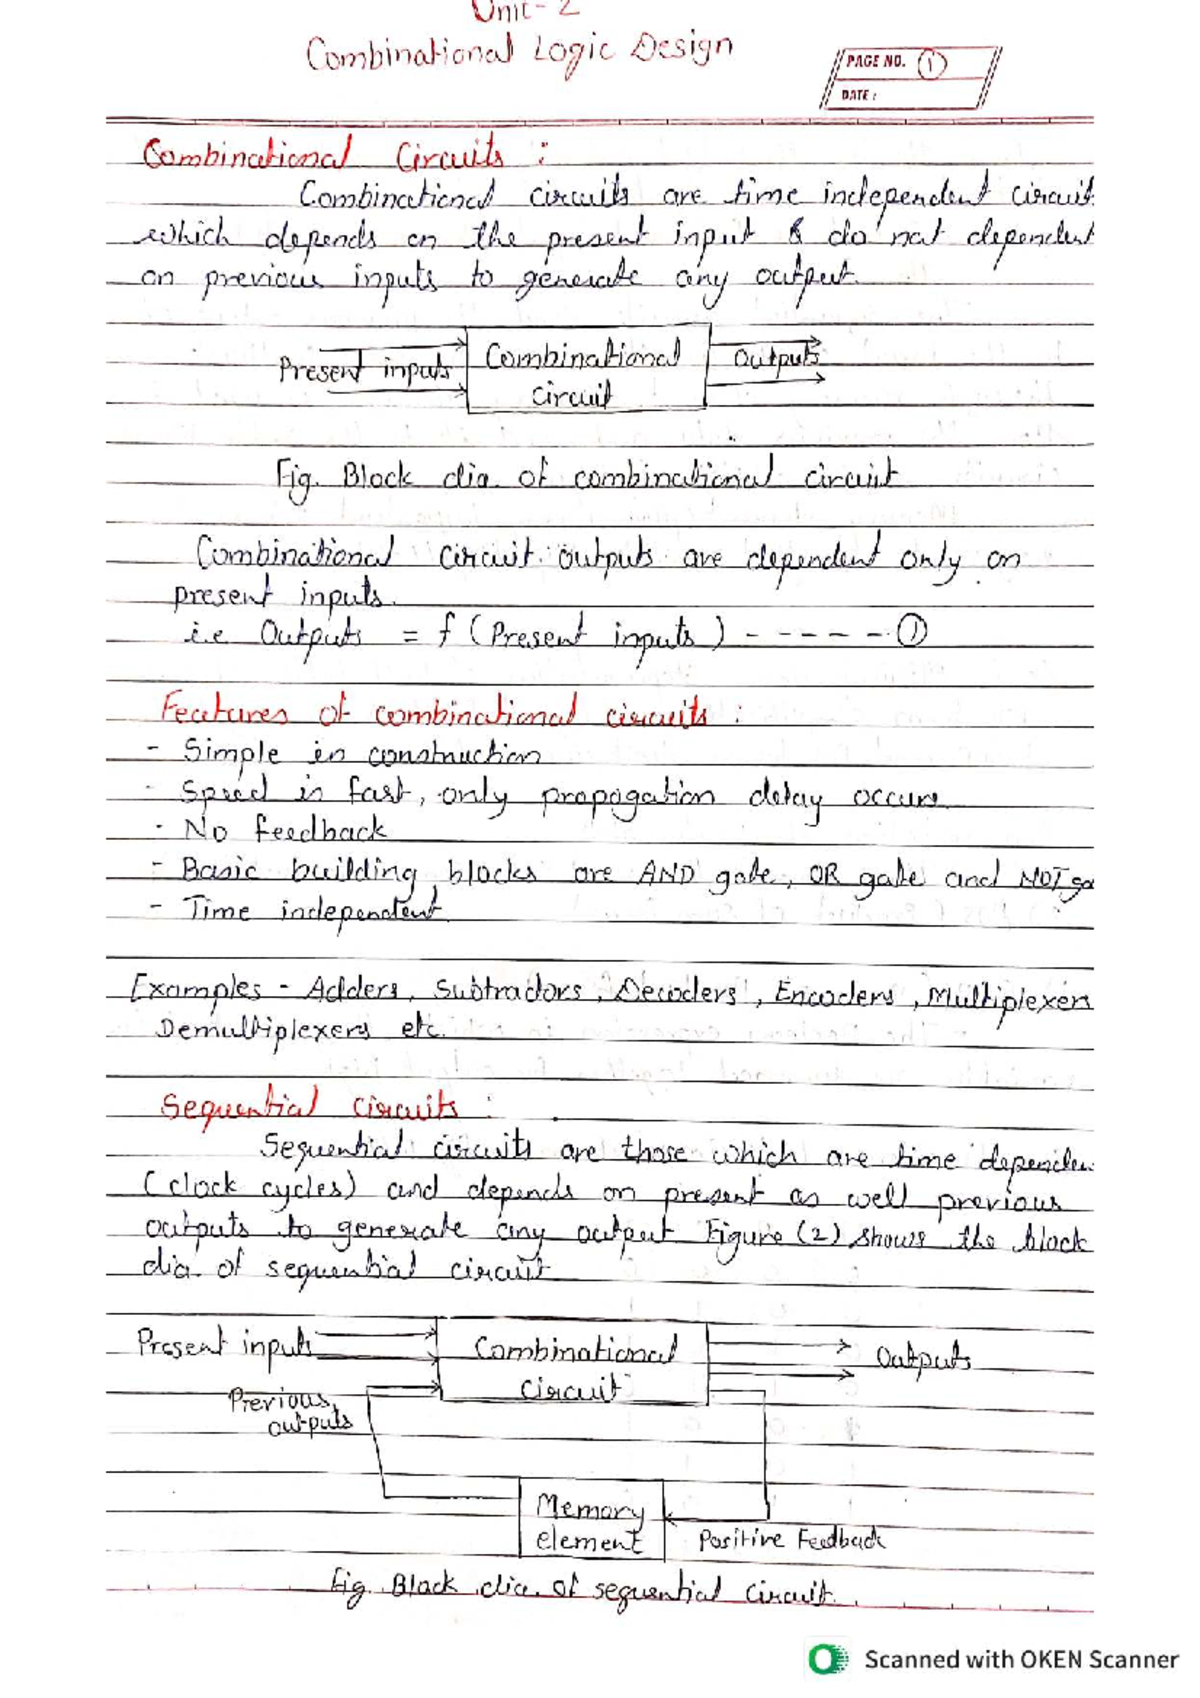 Unit-2
Combinational Logic Design
PAGE NO. 1
DATE :
Combinational Circuits :
Combinational circuits are time independent circuit
which depends on the present input & do not dependent
on previous inputs to generate any output.
Present inputs
Combinational
circuit
Outputs
Fig. Block dia. of combinational circuit
Combinational circuit outputs are dependent only on
present inputs.
i.e Outputs = f (Present inputs) ------ 1
Features of combinational circuits :
- Simple in construction
- Speed is fast, only propogation delay occurs
- No feedback
- Basic building blocks are AND gate, OR gate and NOT ga
- Time independent
Examples - Adders, Subtractors, Decoders, Encoders, Multiplexers
Demultiplexers etc.
Sequential circuits :
Sequential circuits are those which are time dependen
(clock cycles) and depends on present as well previous
outputs to generate any output Figure (2) shows the block
dia. of sequential circuit
Present inputs
Combinational
circuit
Outputs
Previous
outputs
Memory
element
Positive Feedback
Fig. Block dia. of sequential circuit.
Scanned with OKEN Scanner